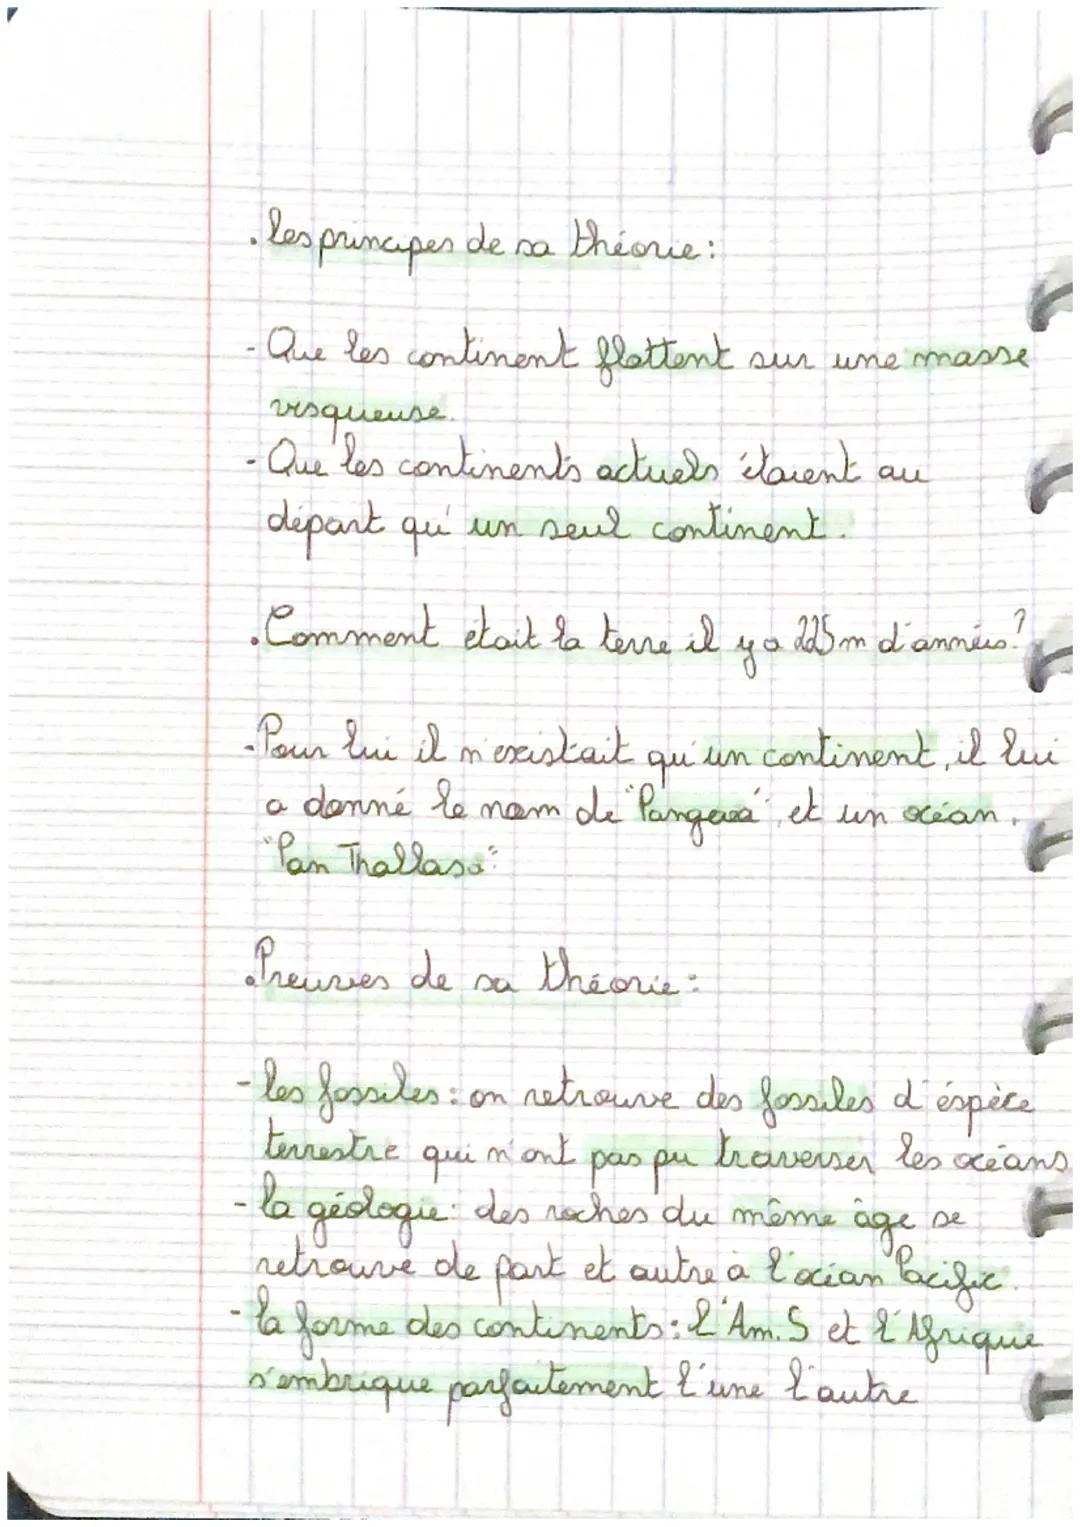 . les principes de sa théorie :
- Que les continent flottent sur une masse
visqueuse.
- Que les continents actuels étaient au
départ qu'un seul continent.
. Comment etait la terre il y a 225 m d'années ?
- Pour lui il n'existait qu'un continent, il lui
a donné le nom de "Pangea", et un océan,
"Pan Thallasa"
. Preuves de sa théorie :
- les fossiles : on retrouve des fossiles d'éspèce
terrestre qui n'ont pas pu traverser les océans
- la géologie : des roches du même âge se
retrouve de part et autre à l'océan Pacific.
- la forme des continents : l'Am. S et l'Afrique
s'embrique parfaitement l'une l'autre